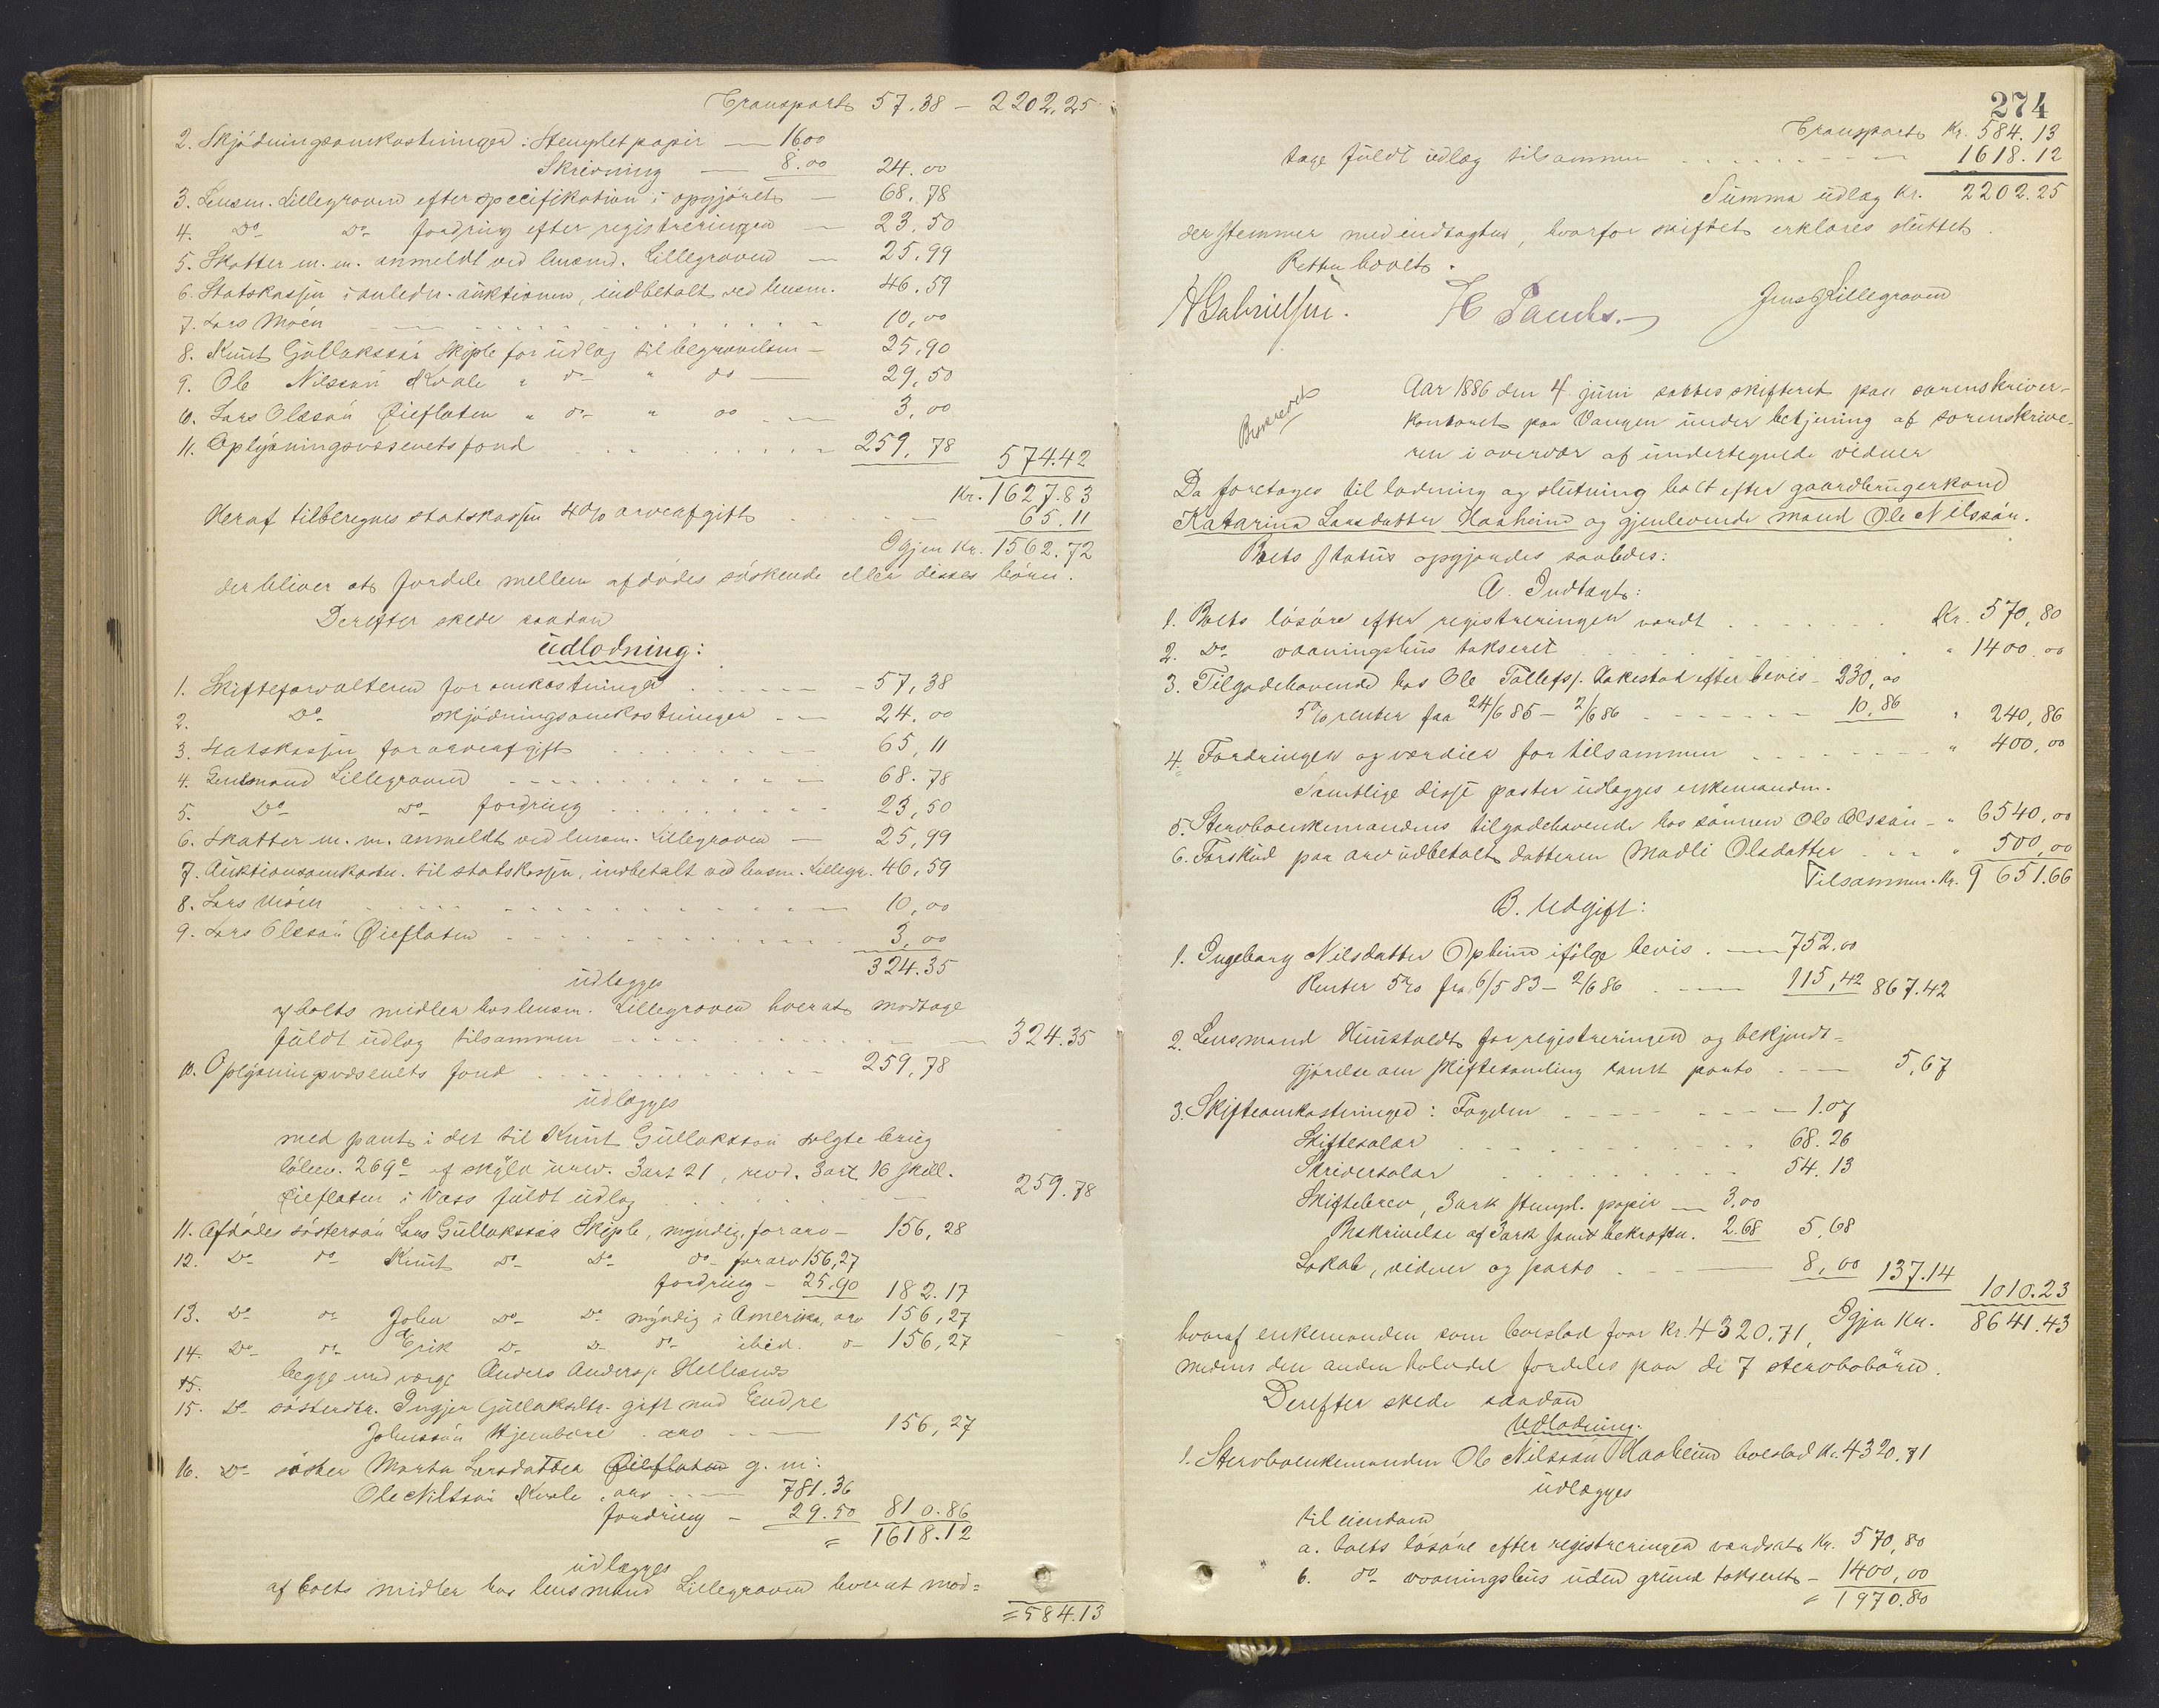 Transport 57.38 - 2202,25
2. Skjödningsomkostninger: Stemplet papir — 16.00
Skrivning — 8.00 24.00
3. Lensm. Lillegraven efter specifikation i opgjöret — 68.78
4. Do Do fordring efter registreringen — 23.50
5. Skatter m. m. anmeldt ved lensmd. Lillegraven — 25,99
6. Statskassen i anledn. auktionen, indbetalt ved lensm. 46.59
7. Lars Moen 10,00
8. Knut Gullakssön Skiple for udlæg til begravelsen — 25,90
9. Ole Nilssön Kvale " do " do — 29,50
10. Lars Olssön Øieflaten " do " do — 3,00
11. Oplysningsvæsenets fond 259,78 574.42
Kr. 1627.83
Heraf tilberegnes statskassen 4% arveafgift 65.11
Igjen Kr. 1562.72
der bliver at fordele mellem afdödes söskende eller disses börn.
Derefter skede saadan
Udlodning:
1. Skifteforvalteren for omkostninger - 57,38
2. Do skjödningsomkostninger - 24.00
3. Statskassen for arveafgift 65,11
4. Lensmand Lillegraven 68.78
5. Do Do fordring 23,50
6. Skatter m. m. anmeldt ved lensm. Lillegraven — 25,99
7. Auktionsomkostn. til statskassen, indbetalt ved lensm. Lillegr. 46,59
8. Lars Moen 10,00
9. Lars Olssön Øieflaten 3,00
324.35
udlægges
af boets midler hos lensm. Lillegraven hvorat modtage
fuldt udlæg tilsammen 324.35
10. Oplysningsvæsenets fond 259,78
udlægges
med pant i det til Knut Gullakssön solgte brug
löbeno. 269c af skyld urev. 3 ort 21, revd. 3 ort 16 skill.
Øieflaten i Voss fuldt udlæg 259.78
11. Afdödes söstersön Lars Gullakssön Skiple, myndig, for arv - 156,28
12. Do do Knut Do Do do for arv 156,27
fordring - 25,90 182.17
13. Do do John Do Do myndig i Amerika, arv 156,27
14. Do do Erik Do Do do ibid. do 156,27
15. begge med værge Anders Anders. Helland
15. Do sösterdtr. Ingjer Gullaksdtr. gift med Endre
Johnssön Hjembore . arv 156,27
16. Do söster Marta Larsdatter Øieflaten g. m.
Ole Nilssön Kvale, arv 781.36
fordring - 29.50 810.86
= 1618.12
udlægges
af boets midler hos lensmand Lillegraven hvorat mod=
= 584.13
274
Transport Kr. 584.13
tage fuldt udlæg tilsammen 1618.12
Summa udlæg Kr. 2202.25
der stemmer med indtægten, hvorfor skiftet erklæres sluttet.
Retten hævet.
Jens Lillegraven
Aar 1886 den 4 juni sattes skifteret paa sorenskriver-
Beskrevet
kontoret paa Vangen under betjening af sorenskrive-
ren i overvær af undertegnede vidner
Da foretoges til lodning og slutning boet efter gaardbrugerkone
Katarina Larsdatter Haaheim og gjenlevende mand Ole Nilssön.
Boets status opgjordes saaledes:
A. Indtægt:
1. Boets lösöre efter registreringen værdt Kr. 570,80
2. Do vaaningshus takseret " 1400.00
3. Tilgodehavende hos Ole Tollefs. Takestad efter bevis - 230,00
5% renter fra 24/6 85 - 2/6 86 10,86 " 240,86
4. Fordringer og værdier for tilsammen " 400,00
Samtlige disse poster udlægges enkemanden.
5. Stervboenkemandens tilgodehavende hos sönnen Ole Olssön - " 6540,00
6. Forskud paa arv udbetalt datteren Madli Olsdatter " 500,00
Tilsammen Kr. 9651.66
B. Udgift:
1. Ingeborg Nilsdatter Opheim ifölge bevis. — 752.00
Renter 5% fra 6/5 83 - 2/6 86 115,42 867.42
2. Lensmand Hunstvedt for registreringen og bekjendt-
gjörelse om skiftesamling samt porto 5,67
3. Skifteomkostninger: Fogden 1.07
Skiftesalær 68.26
Skriversalær 54.13
Skiftebrev, 3 ark stempl. papir — 3,00
Beskrivelse af 3 ark samt bekræftn. 2.68 5,68
Lokale, vidner og porto 8,00 137.14 1010.23
Igjen Kr. 8641.43
hvoraf enkemanden som boeslod faar Kr. 4320,71,
medens den anden halvdel fordeles paa de 7 stervbobörn.
Derefter skede saadan
Udlodning.
1. Stervboenkemanden Ole Nilssön Haaheim boeslod Kr. 4320,71
udlægges
til eiendom
a. boets lösöre efter registreringen værdsat Kr. 570,80
b. do vaaningshus uden grund takseret - 1400,00
= 1970.80